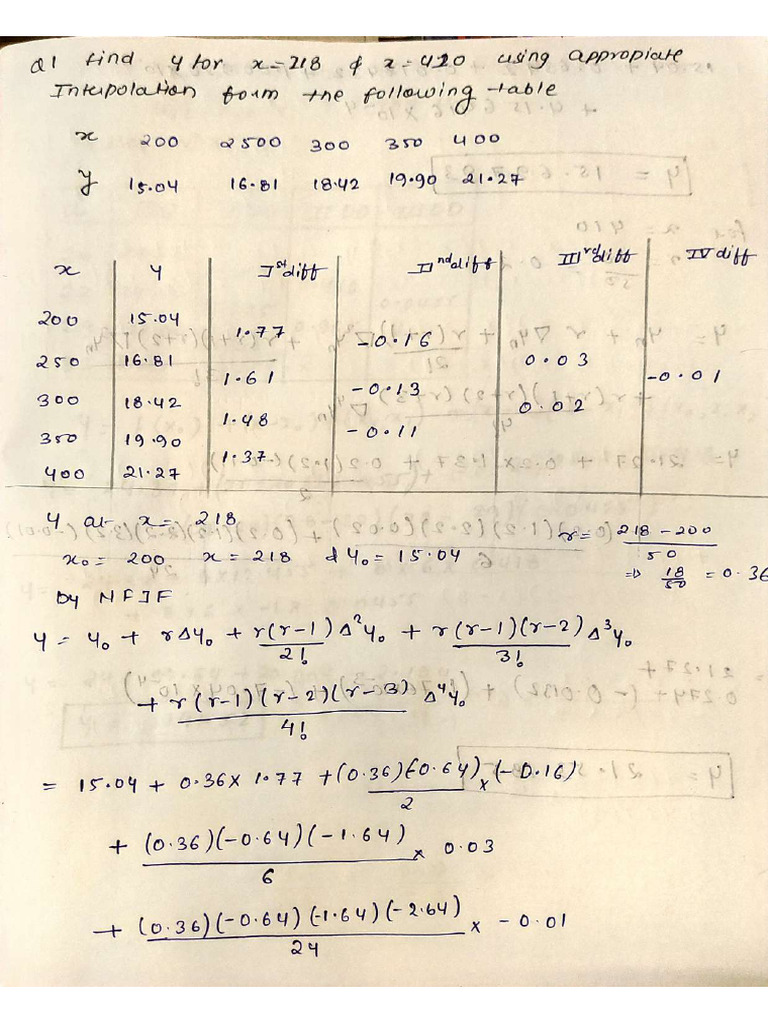 Q1 find y for x=218 & x=420 using appropiate
Interpolation form the following table
x 200 2500 300 350 400
y 15.04 16.81 18.42 19.90 21.27
x y Ist diff IInd diff IIIrd diff IV diff
200 15.04
1.77
-0.16
250 16.81 0.03
1.61 -0.01
-0.13
300 18.42 0.02
1.48
-0.11
350 19.90
1.37
400 21.27
y at x = 218
x₀ = 200 x = 218 & y₀ = 15.04 r = (218 - 200)/50
⇒ 18/50 = 0.36
by NFIF
y = y₀ + rΔy₀ + r(r-1)/2! Δ²y₀ + r(r-1)(r-2)/3! Δ³y₀
+ r(r-1)(r-2)(r-3)/4! Δ⁴y₀
= 15.04 + 0.36 x 1.77 + (0.36)(-0.64)/2 x (-0.16)
+ (0.36)(-0.64)(-1.64)/6 x 0.03
+ (0.36)(-0.64)(-1.64)(-2.64)/24 x -0.01